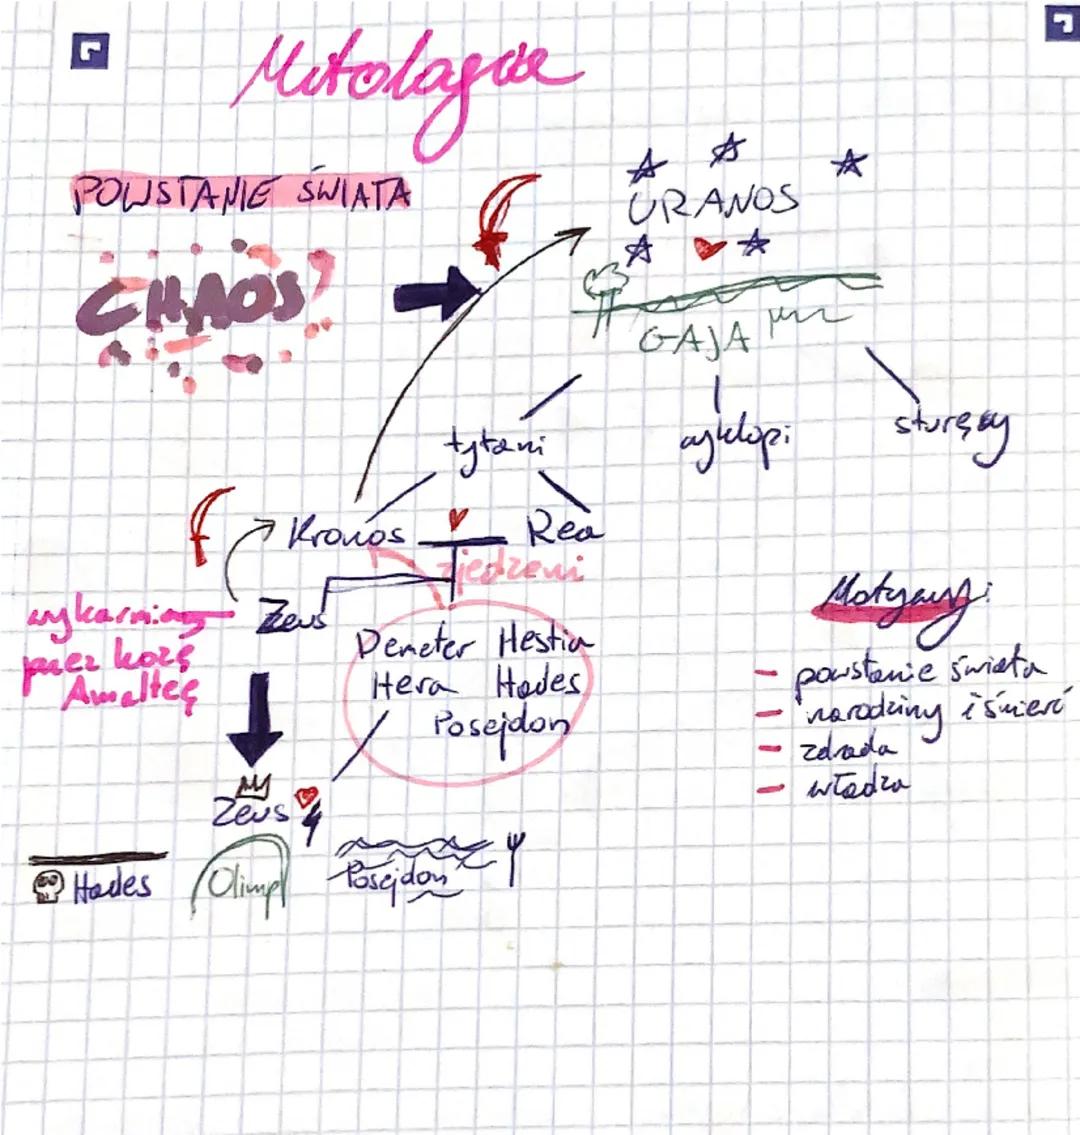 Mitologia
POWSTANIE ŚWIATA
CHAOS
URANOS
GAJA
tytani cyklopi sturęcy
Kronos Rea
zjedzeni
Zeus
wykarmiony
przez kozę
Amalteę
Demeter Hestia
Hera Hades
Posejdon
Zeus
Hades Olimp Posejdon
Motywy:
- powstanie świata
- narodziny i śmierć
- zdrada
- władza